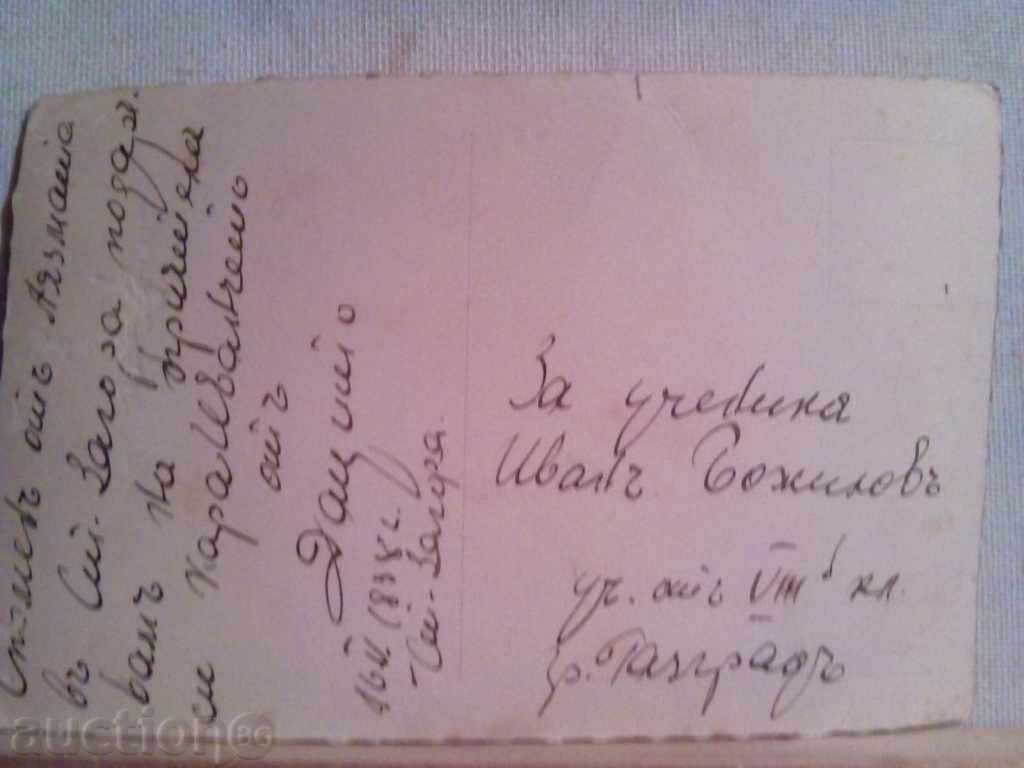 Споменъ отъ Аязмата
въ Ст. Загора подаря-
вамъ на приятеля
си КараИванчето
отъ
Данчито
16.VI. 1938 г.
-Ст.-Загора.
За ученика
Иванъ Божиловъ
уч. отъ VIII кл.
гр. Разградъ
auction BG